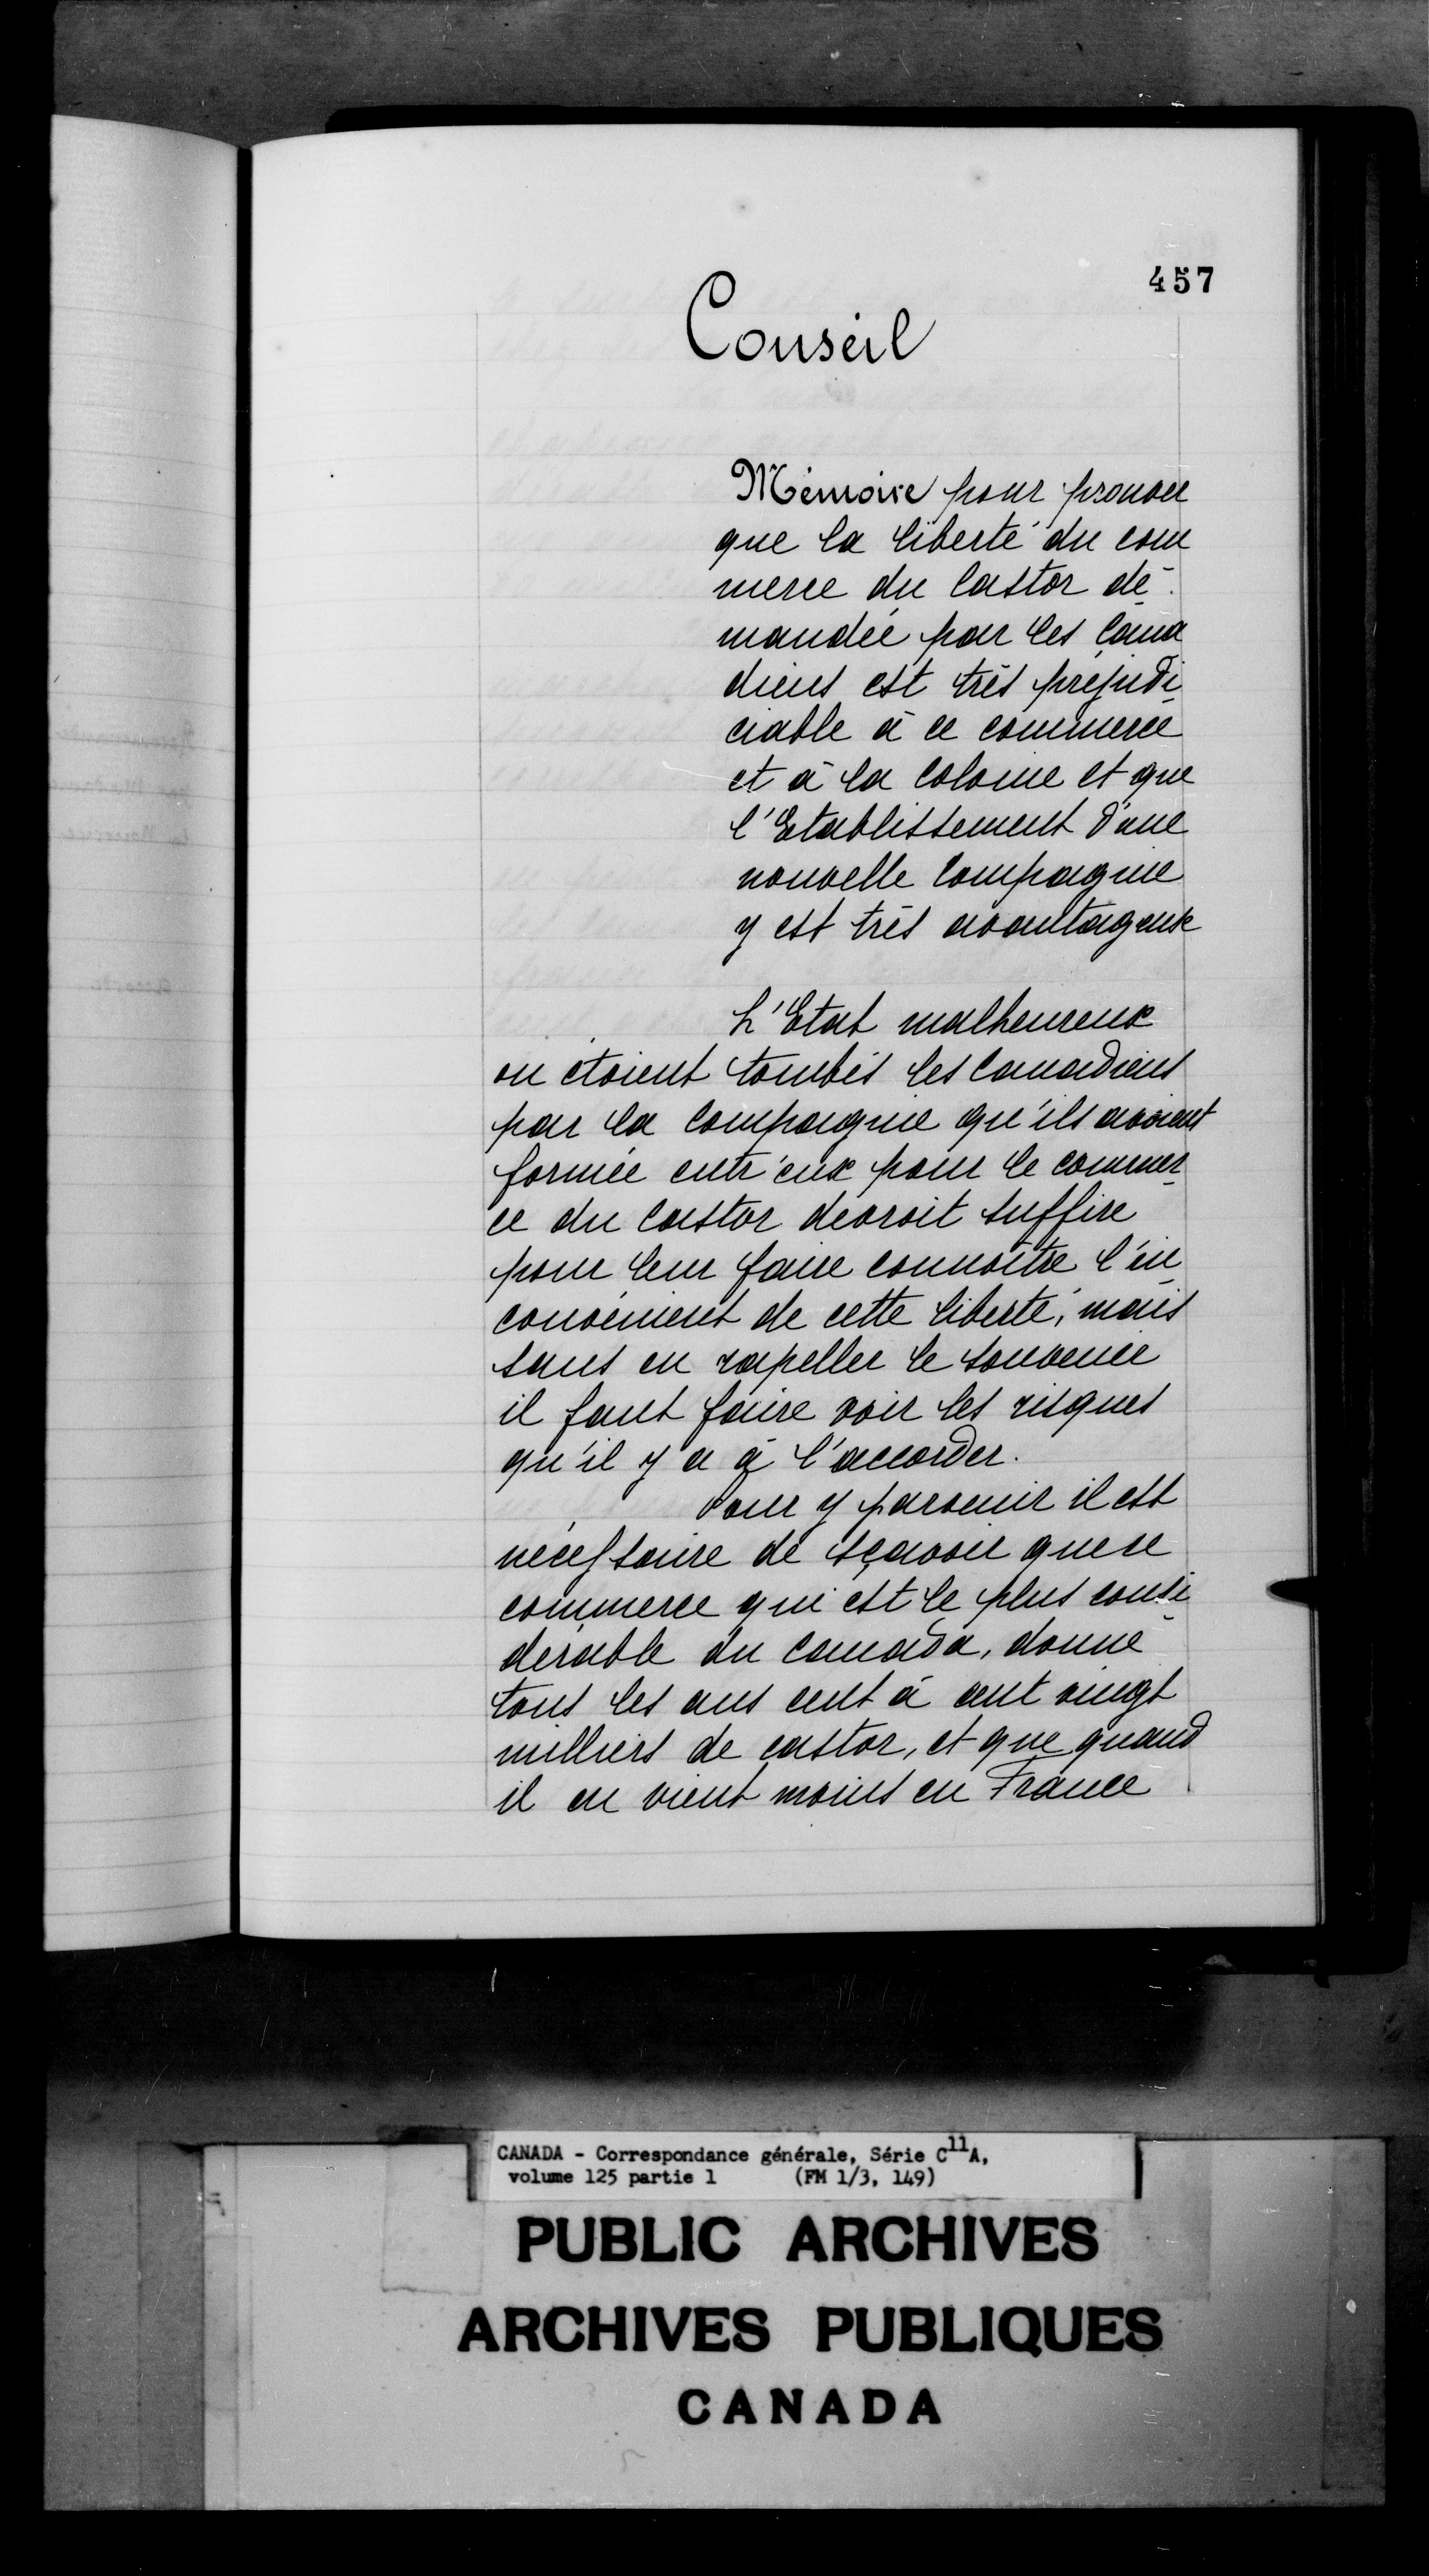 457
Conseil
Mémoire pour prouver
que la liberté du com
merce du Castor de-
mandée par les Cana
diens est très préjudi
ciable à ce commerce
et à la Colonie et que
l'Etablissement d'une
nouvelle Compagnie
y est très avantageuse
L'Etat malheureux
ou étoient tombés les Canadiens
par la Compagnie qu'ils avoient
formée entr'eux pour le commer
ce du Castor devroit suffire
pour leur faire connoître l'in
convénient de cette liberté, mais
sans en rapeller le souvenir
il faut faire voir les risques
qu'il y a à l'accorder.
Pour y parvenir il est
nécessaire de sçavoir que ce
commerce qui est le plus consi
dérable du Canada, donne
tous les ans cent à cent vingt
milliers de castor, et que quand
il en vient moins en France
CANADA - Correspondance générale, Série C11A,
volume 125 partie 1 (FM 1/3, 149)
PUBLIC ARCHIVES
ARCHIVES PUBLIQUES
CANADA